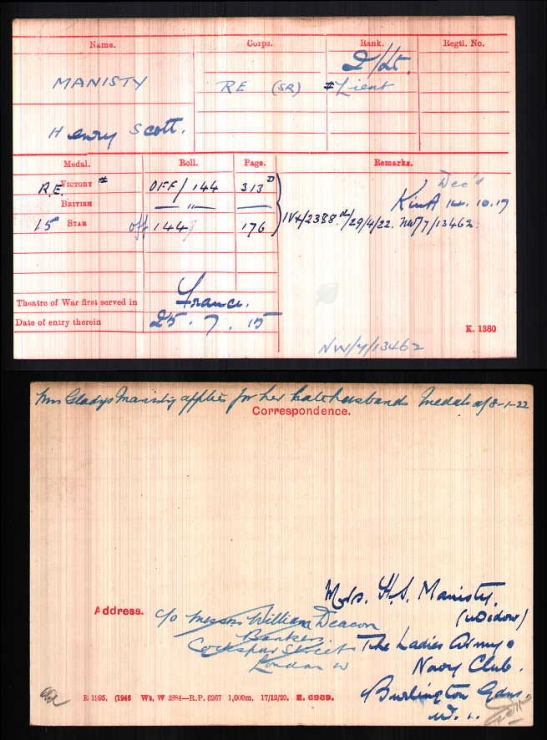 Name. Corps. Rank. Regtl. No.
2/Lt.
MANISTY RE (SR) # Lieut
Henry Scott.
Medal. Roll. Page. Remarks.
R.E. VICTORY # OFF/144 313 D Dec'd
BRITISH — " — — KinA 14.10.17
15 STAR off 144 176 IV4/2388 d/29/4/22. NW/7/13462.
Theatre of War first served in France.
Date of entry therein 25.7.15
K. 1380
NW/7/13462
Mrs Gladys Manisty applies for her late husband's Medals d/8-1-22
Correspondence.
Mrs. H.S. Manisty.
(widow)
Address. c/o Messrs William Deacon
Bankers
Cockspur Street
London W
The Ladies Army &
Navy Club.
Burlington Gdns
W.1.
E 1195. (1946 Wt. W 3884—R.P. 8267 1,000m. 17/12/20. E. 6989.